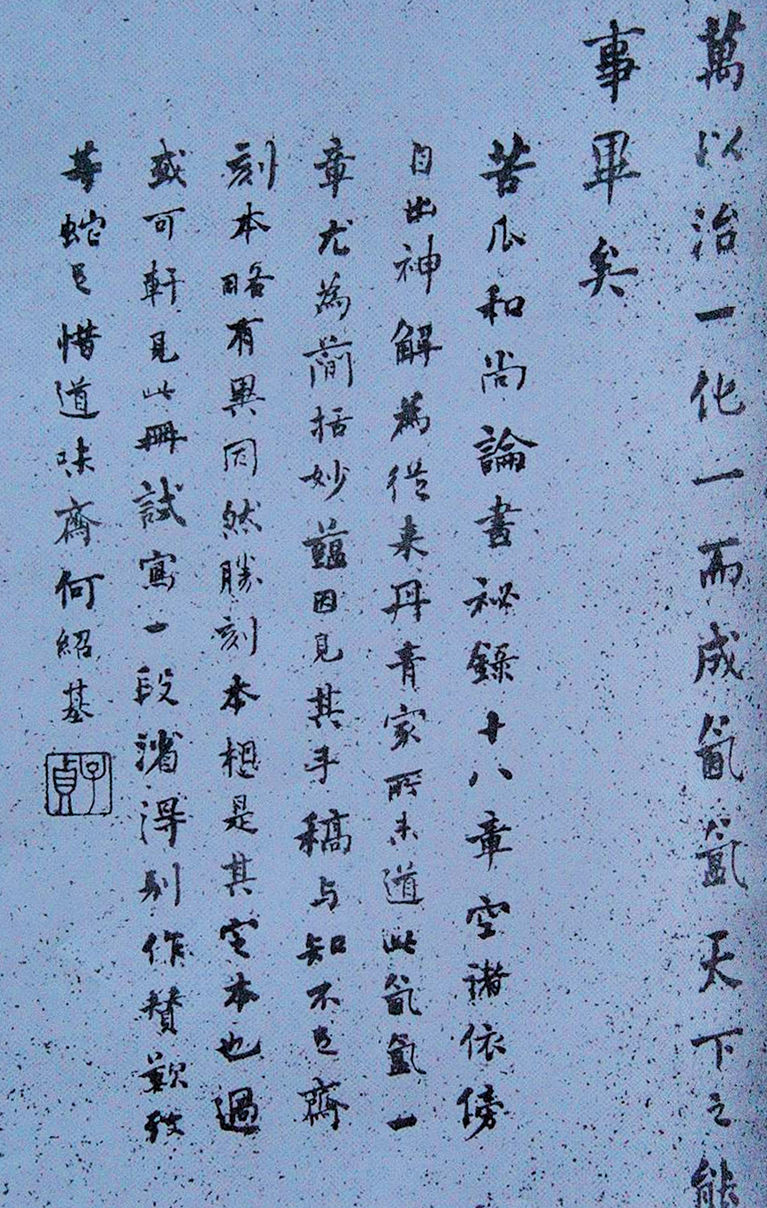 萬以治一化一而成氤氳天下之能
事畢矣
苦瓜和尚論書祕錄十八章空諸依傍
自出神解為從來丹青家所未道此氤氳一
章尤為簡括妙蘊因見其手稿与知不足齋
刻本略有異同然勝刻本想是其定本也過
或可軒見此冊試寫一段渻得別作贊歎從
等蛇足惜道味齋何紹基
子貞